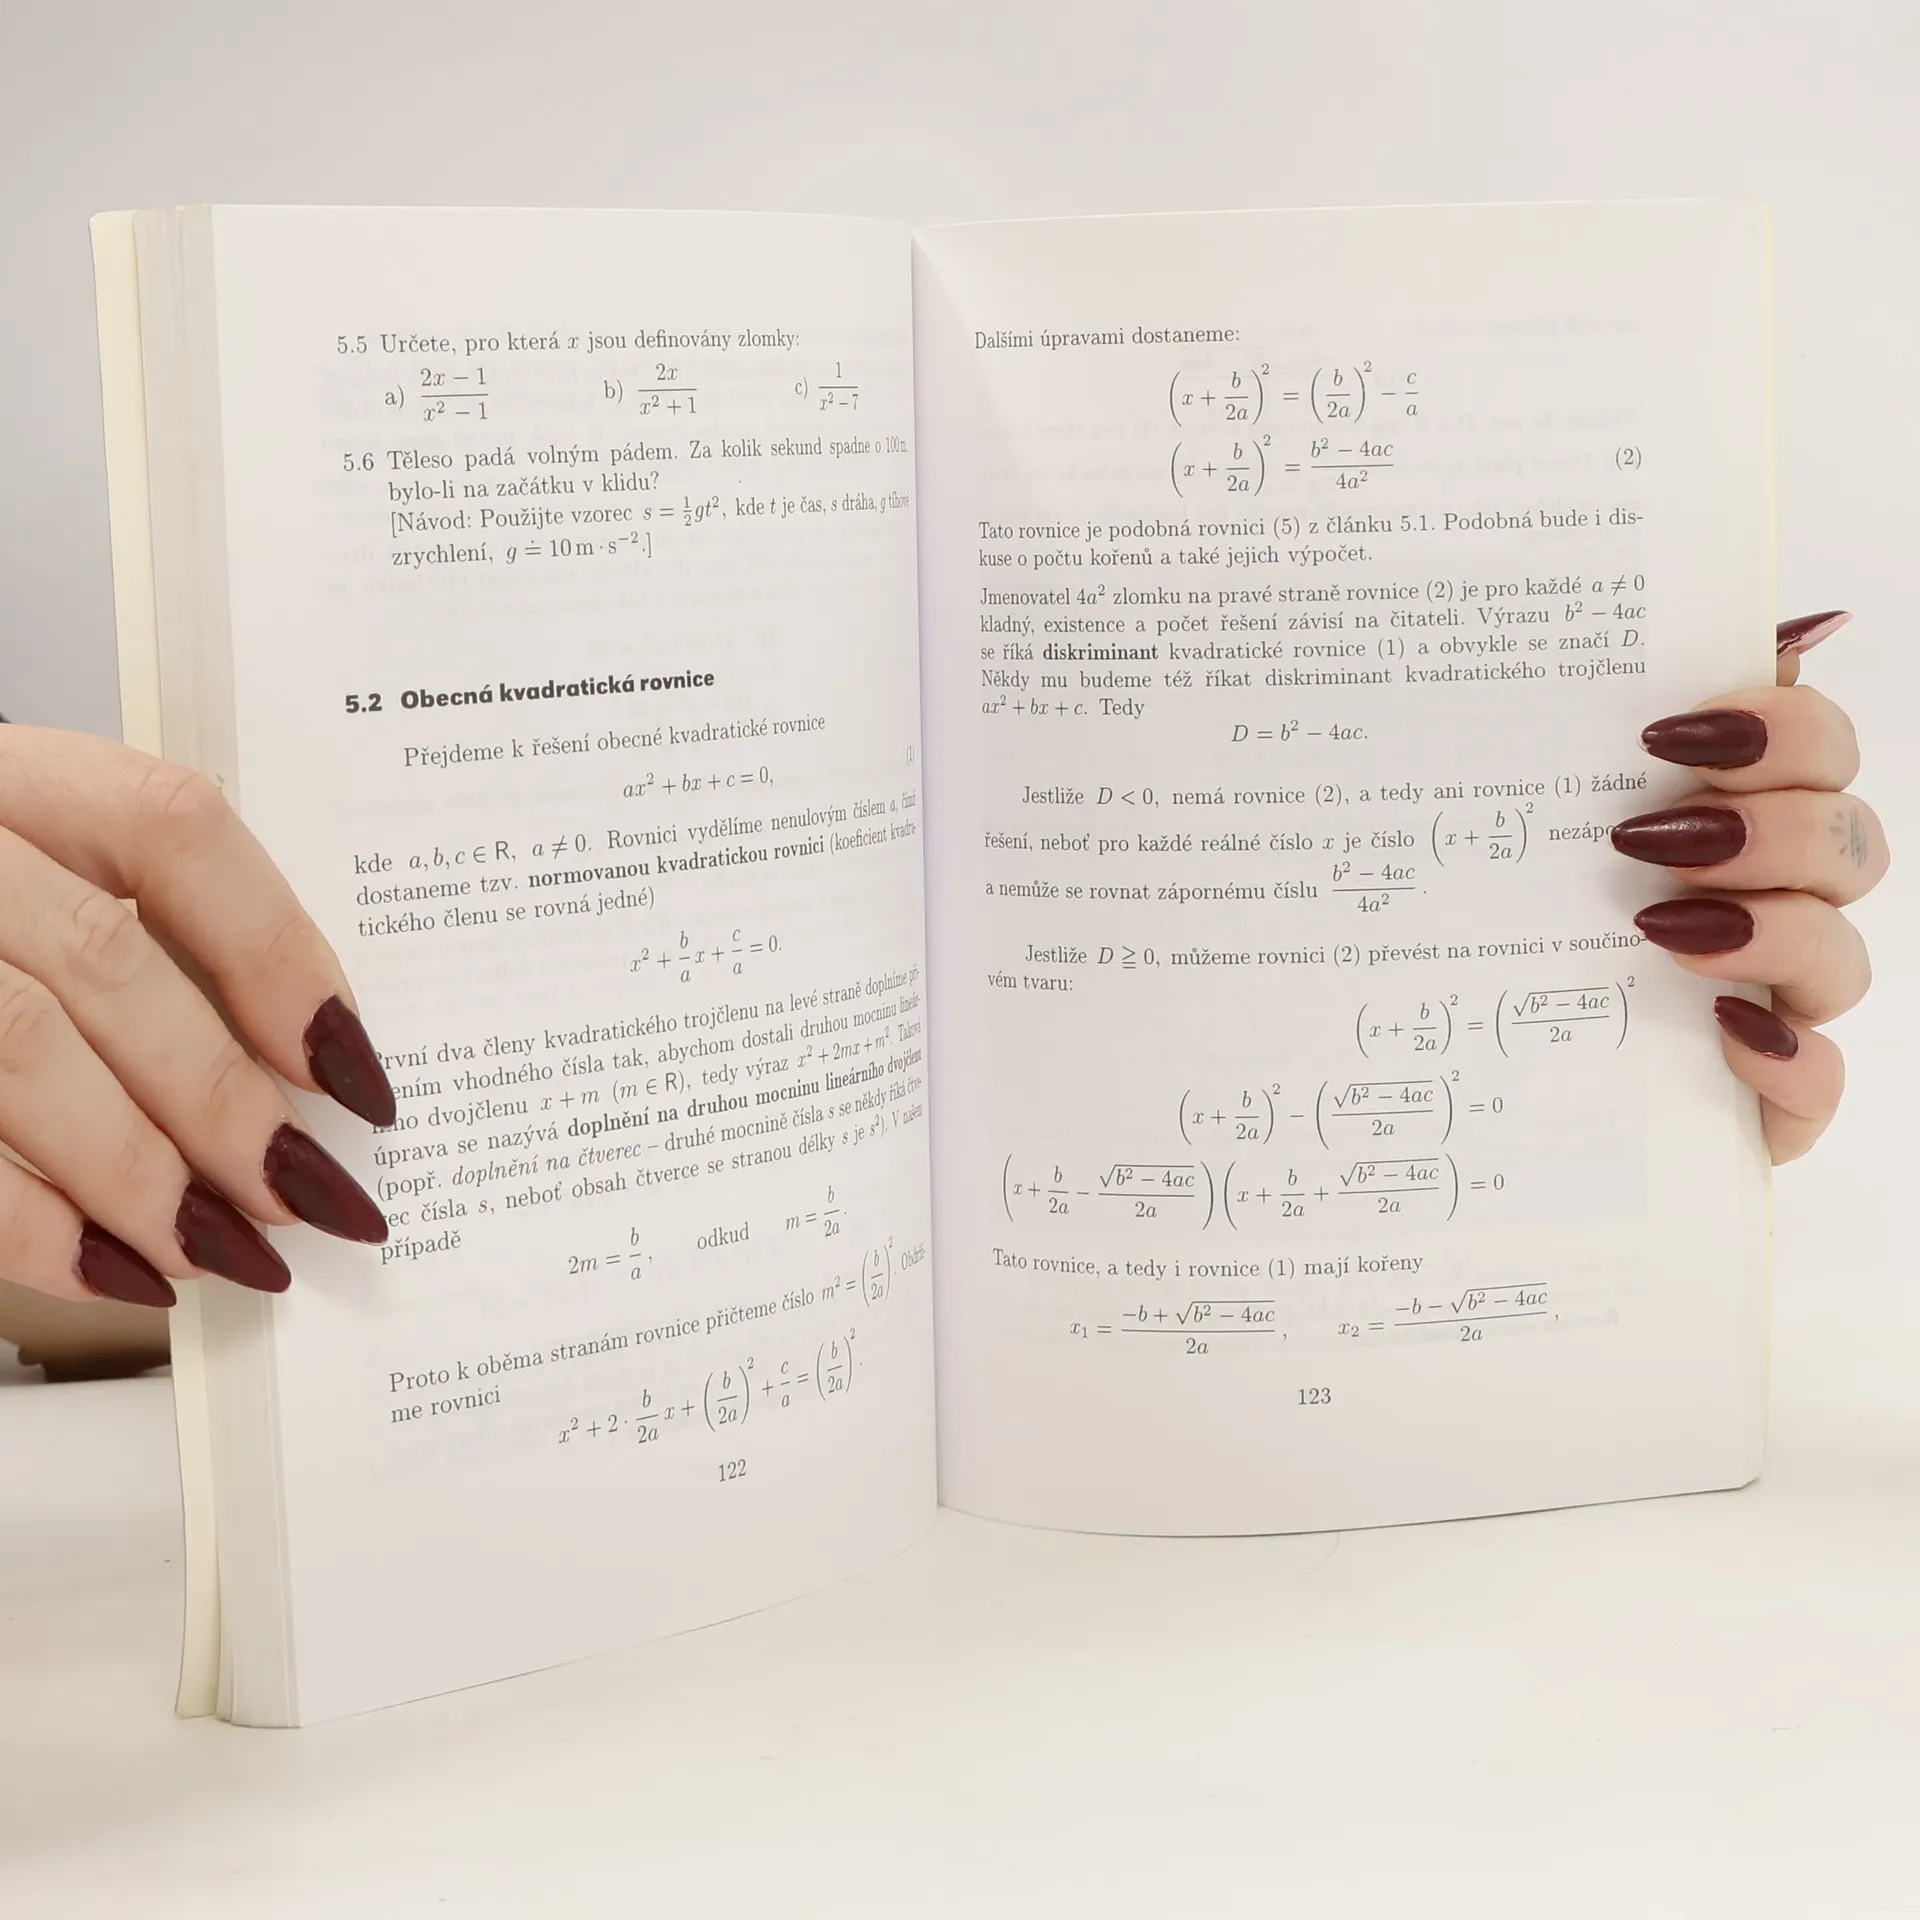 5.5 Určete, pro která x jsou definovány zlomky:
a) \frac{2x − 1}{x² − 1} b) \frac{2x}{x² + 1} c) \frac{1}{x² − 7}
5.6 Těleso padá volným pádem. Za kolik sekund spadne o 100 m
bylo-li na začátku v klidu?
[Návod: Použijte vzorec s = \frac{1}{2}gt², kde t je čas, s dráha, g tíhové
zrychlení, g ≐ 10 m · s⁻².]
5.2 Obecná kvadratická rovnice
Přejdeme k řešení obecné kvadratické rovnice
ax² + bx + c = 0, (1)
kde a, b, c ∈ R, a ≠ 0. Rovnici vydělíme nenulovým číslem a, čímž
dostaneme tzv. normovanou kvadratickou rovnici (koeficient kvadra-
tického členu se rovná jedné)
x² + \frac{b}{a}x + \frac{c}{a} = 0.
První dva členy kvadratického trojčlenu na levé straně doplníme při-
vhodného čísla tak, abychom dostali druhou mocninu lineár-
dvojčlenu x + m (m ∈ R), tedy výraz x² + 2mx + m². Taková
úprava se nazývá doplnění na druhou mocninu lineárního dvojčlenu
(popř. doplnění na čtverec – druhé mocnině čísla s se někdy říká čtve-
rec čísla s, neboť obsah čtverce se stranou délky s je s²). V našem
případě
2m = \frac{b}{a}, odkud m = \frac{b}{2a}.
Proto k oběma stranám rovnice přičteme číslo m² = (\frac{b}{2a})². Obdrží-
me rovnici
x² + 2 · \frac{b}{2a}x + (\frac{b}{2a})² + \frac{c}{a} = (\frac{b}{2a})².
122
Dalšími úpravami dostaneme:
(x + \frac{b}{2a})² = (\frac{b}{2a})² − \frac{c}{a}
(x + \frac{b}{2a})² = \frac{b² − 4ac}{4a²} (2)
Tato rovnice je podobná rovnici (5) z článku 5.1. Podobná bude i dis-
kuse o počtu kořenů a také jejich výpočet.
Jmenovatel 4a² zlomku na pravé straně rovnice (2) je pro každé a ≠ 0
kladný, existence a počet řešení závisí na čitateli. Výrazu b² − 4ac
se říká diskriminant kvadratické rovnice (1) a obvykle se značí D.
Někdy mu budeme též říkat diskriminant kvadratického trojčlenu
ax² + bx + c. Tedy
D = b² − 4ac.
Jestliže D < 0, nemá rovnice (2), a tedy ani rovnice (1) žádné
řešení, neboť pro každé reálné číslo x je číslo (x + \frac{b}{2a})²
a nemůže se rovnat zápornému číslu \frac{b² − 4ac}{4a²}.
Jestliže D ≧ 0, můžeme rovnici (2) převést na rovnici v součino-
vém tvaru:
(x + \frac{b}{2a})² = (\frac{√(b² − 4ac)}{2a})²
(x + \frac{b}{2a})² − (\frac{√(b² − 4ac)}{2a})² = 0
(x + \frac{b}{2a} − \frac{√(b² − 4ac)}{2a})(x + \frac{b}{2a} + \frac{√(b² − 4ac)}{2a}) = 0
Tato rovnice, a tedy i rovnice (1) mají kořeny
x₁ = \frac{−b + √(b² − 4ac)}{2a}, x₂ = \frac{−b − √(b² − 4ac)}{2a},
123